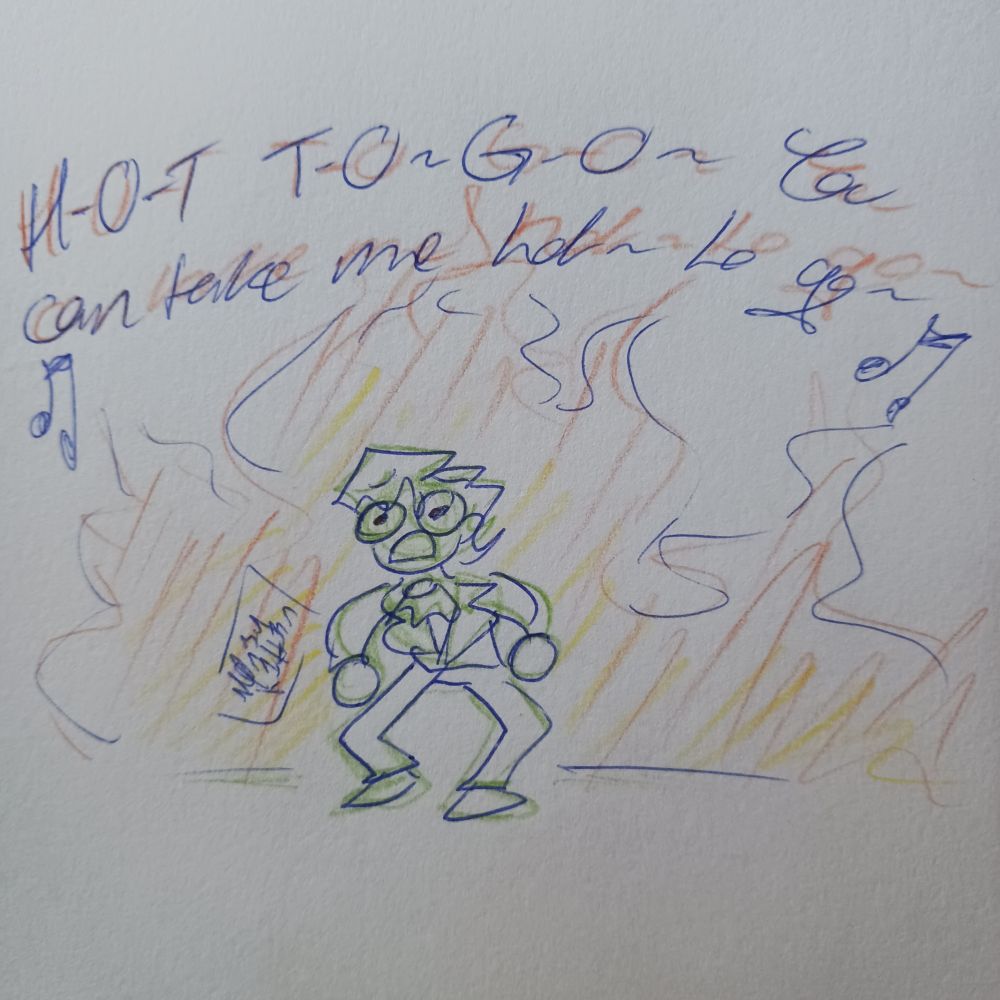 H-O-T T-O~G-O~
can take me hot~ to go~